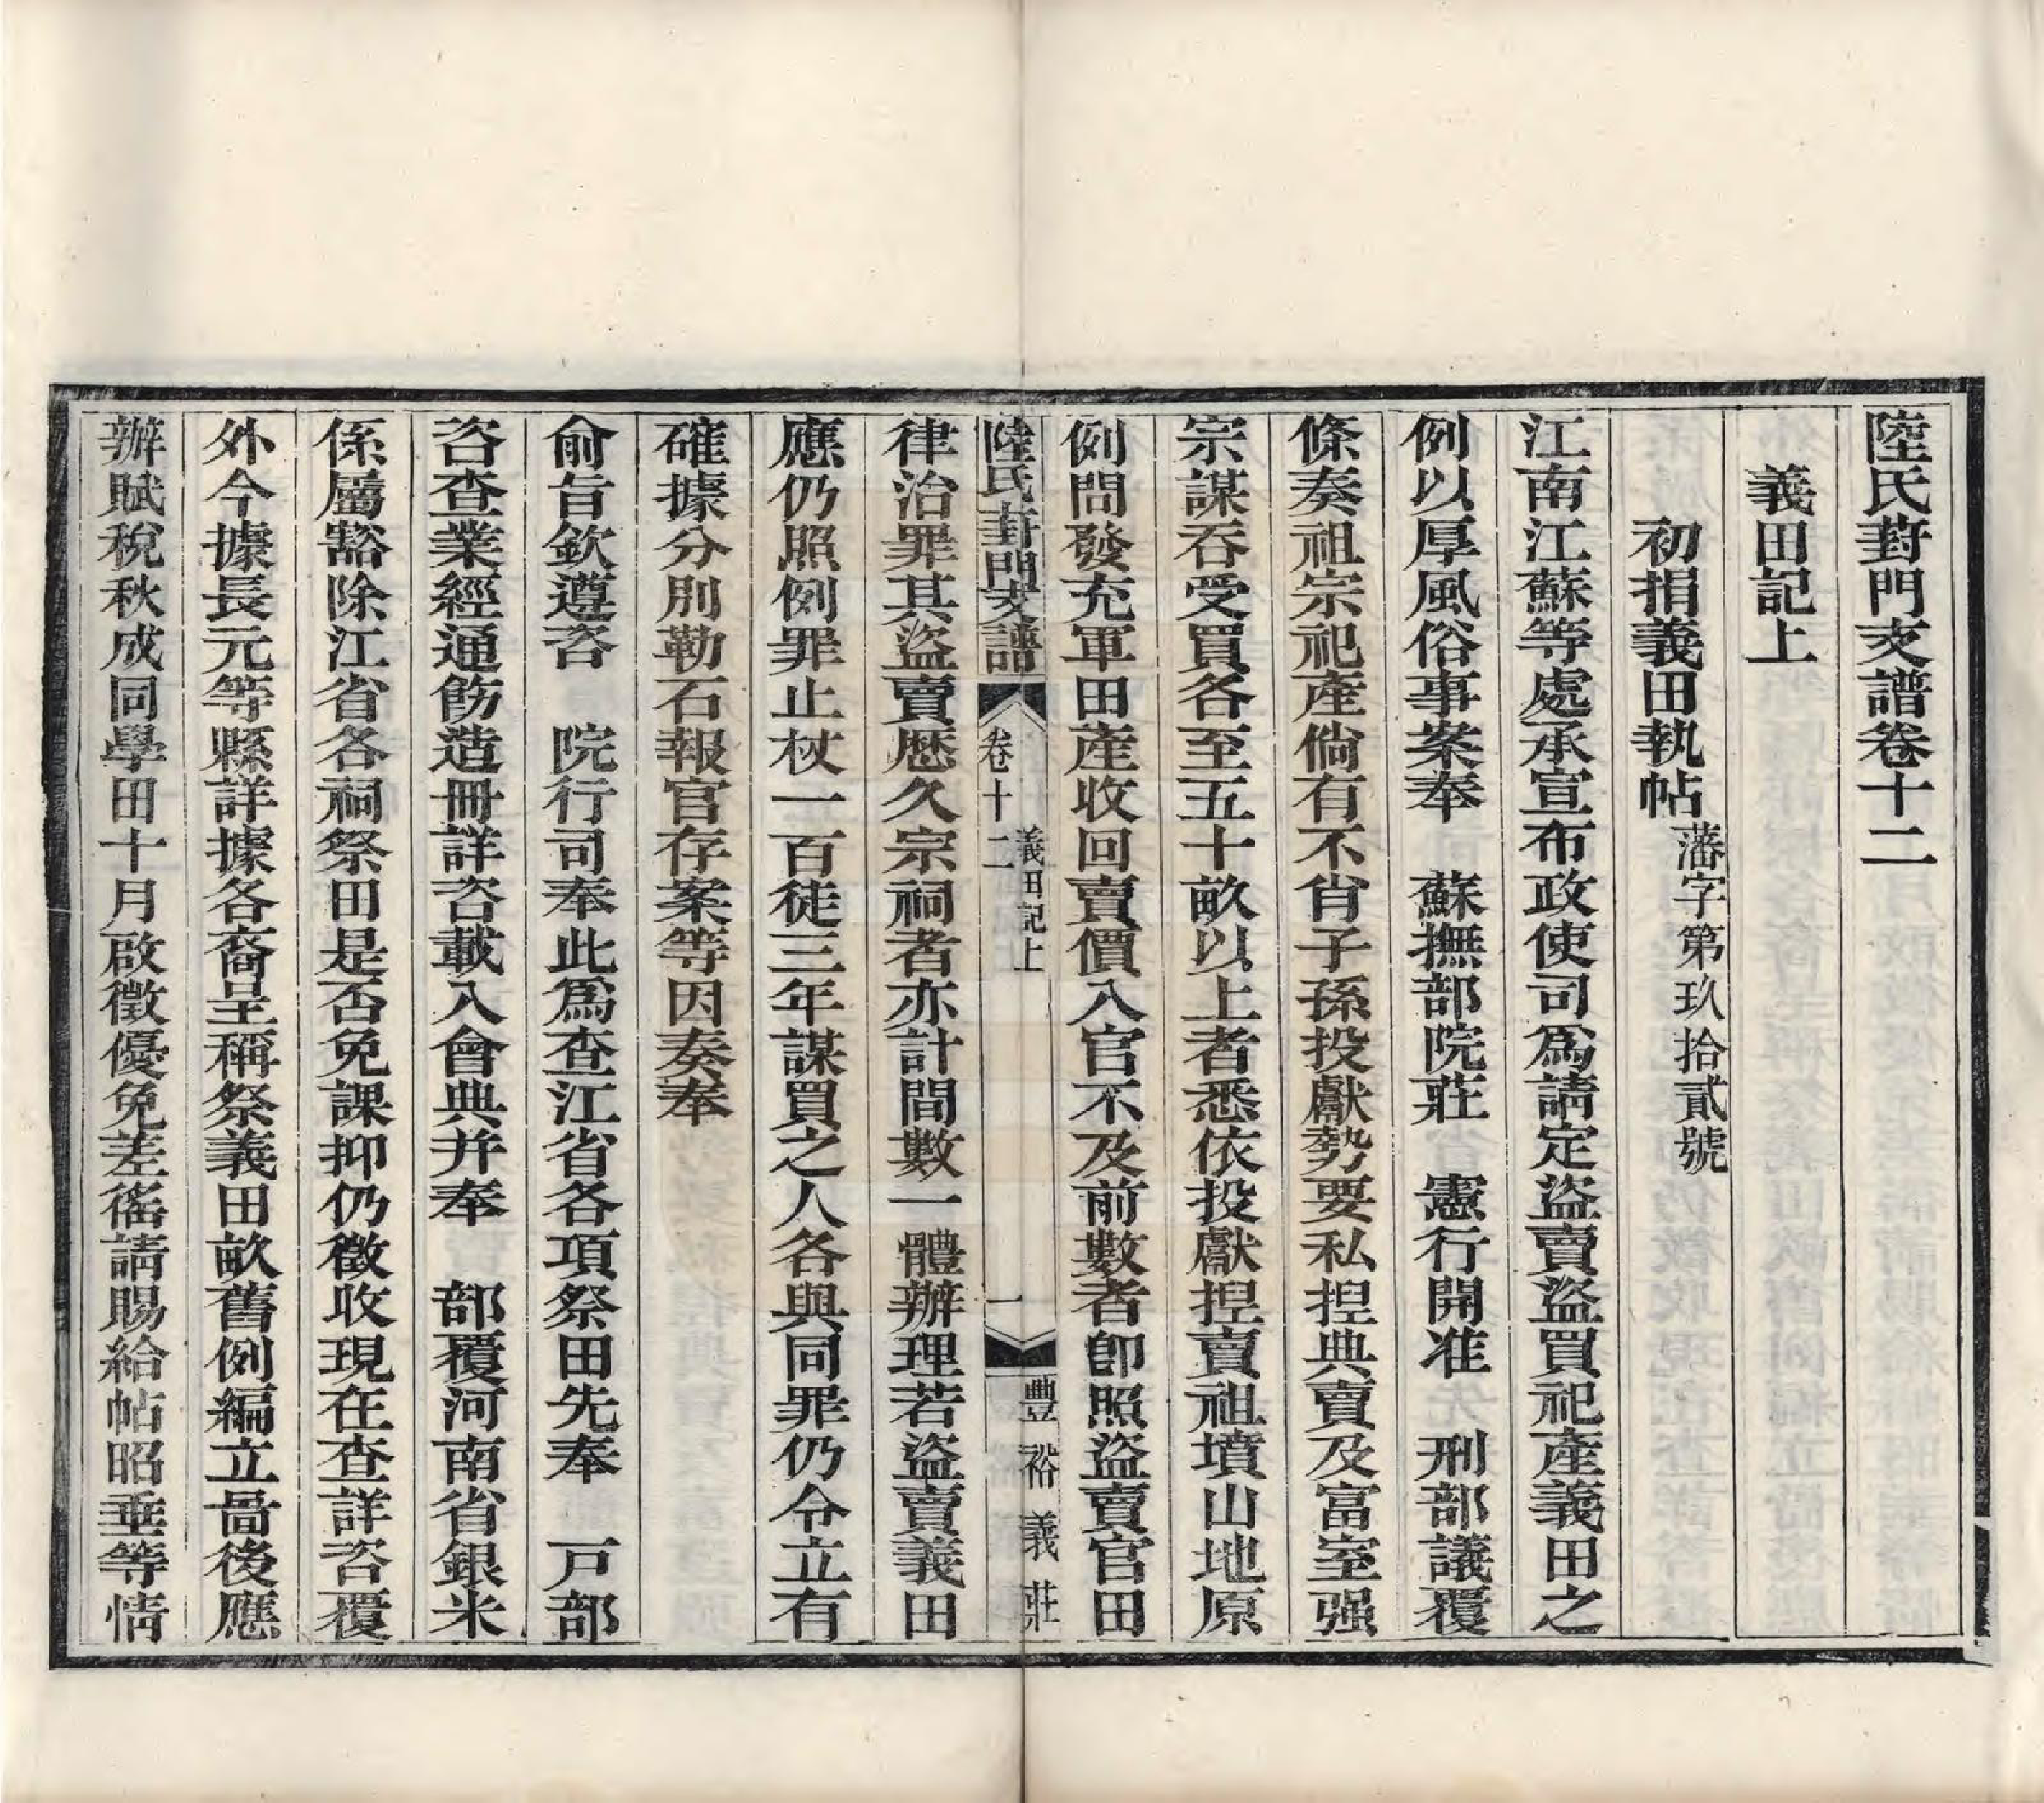 陸氏葑門支譜卷十二
義田記上
初捐義田執帖藩字第玖拾貳號
江南江蘇等處承宣布政使司爲請定盜賣盜買祀產義田之
例以厚風俗事案奉　蘇撫部院莊　憲行開准　刑部議覆
條奏祖宗祀產倘有不肖子孫投獻勢要私捏典賣及富室强
宗謀吞受買各至五十畝以上者悉依投獻捏賣祖墳山地原
例問發充軍田產收回賣價入官不及前數者卽照盜賣官田
陸氏葑門支譜　卷十二　義田記上　一　豐裕義莊
律治罪其盜賣歷久宗祠者亦計間數一體辦理若盜賣義田
應仍照例罪止杖一百徒三年謀買之人各與同罪仍令立有
確據分別勒石報官存案等因奏奉
俞旨欽遵咨　院行司奉此爲查江省各項祭田先奉　戸部
咨查業經通飭造冊詳咨載入會典并奉　部覆河南省銀米
係屬豁除江省各祠祭田是否免課抑仍徵收現在查詳咨覆
外今據長元等縣詳據各裔呈稱祭義田畝舊例編立啚後應
辦賦稅秋成同學田十月啟徵優免差徭請賜給帖昭垂等情